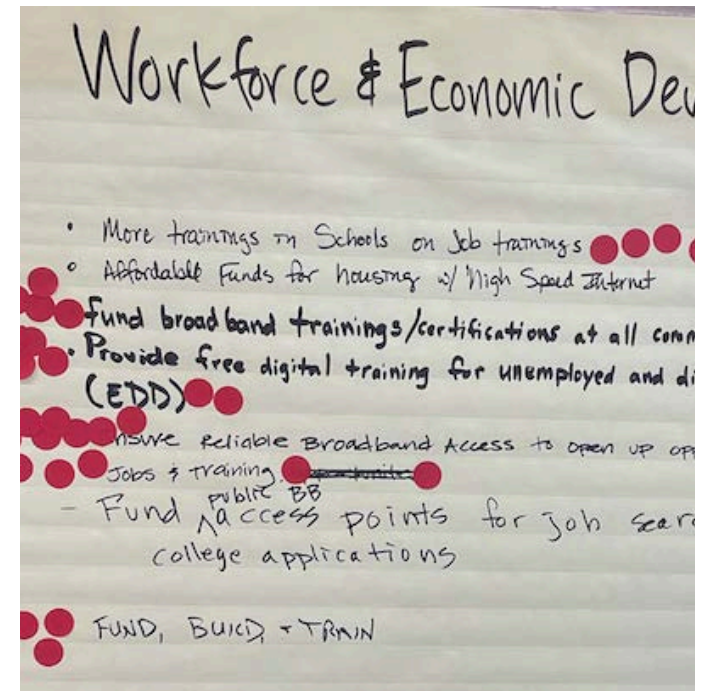 Workforce & Economic Dev
• More trainings in Schools on Job trainings
• Affordable Funds for housing w/ High Speed Internet
Fund broadband trainings/certifications at all comm
• Provide free digital training for unemployed and di
(EDD)
nsure Reliable Broadband Access to open up opp
Jobs & training.
public BB
- Fund ^ access points for job sear
college applications
FUND, BUILD, + TRAIN